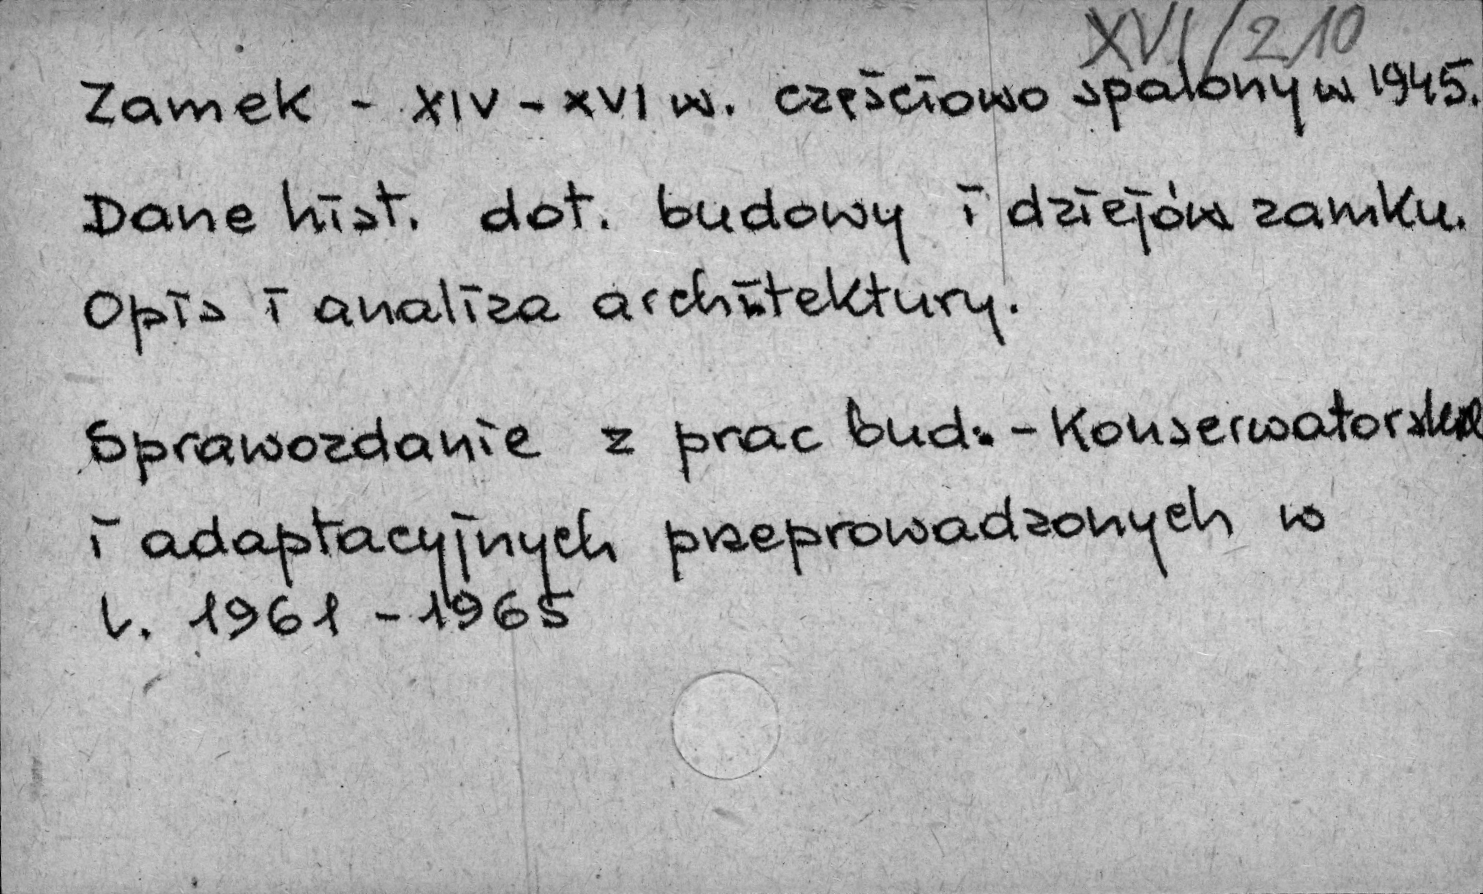 XVI/210
Zamek - XIV - XVI w. częściowo spalony w 1945.
Dane hist. dot. budowy i dziejów zamku.
Opis i analiza architektury.
Sprawozdanie z prac bud. - Konserwatorskich
i adaptacyjnych przeprowadzonych w
l. 1961 - 1965